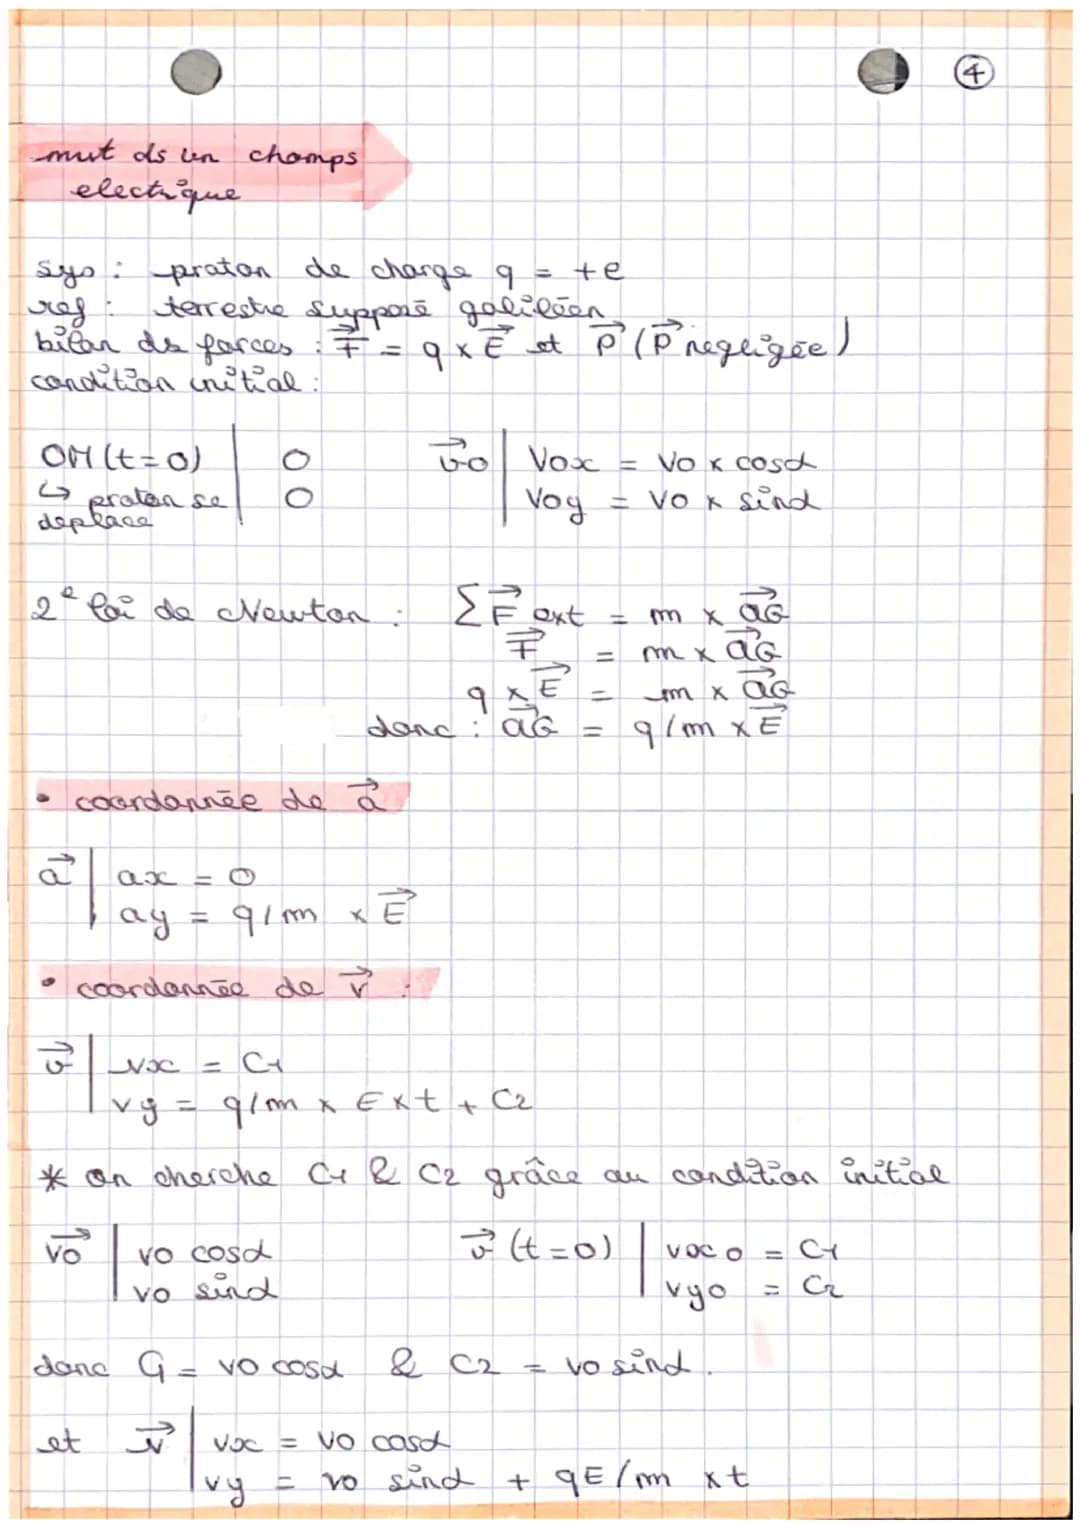 4
mvt ds un champs
electrique
sys : proton de charge q = +e
ref : terrestre supposé galiléen
bilan de forces : F⃗ = q x E⃗ et P⃗ (P⃗ negligée)
condition initial :
OM (t=0) | 0    v⃗0 | Vox = Vo x cosα
↳ proton se | 0    | Voy = Vo x sinα
deplace
2e loi de Newton : ΣF⃗ ext = m x a⃗G
F⃗ = m x a⃗G
q x E⃗ = m x a⃗G
donc : a⃗G = q/m x E⃗
• coordonnée de a⃗
a⃗ | ax = 0
| ay = q/m x E⃗
• coordonnée de v⃗ :
v⃗ | vx = C1
| vy = q/m x E x t + C2
* on cherche C1 & C2 grâce au condition initial
v⃗o | vo cosα    v⃗ (t=0) | vxo = C1
| vo sinα    | vyo = C2
donc C1 = vo cosα & C2 = vo sinα.
et v⃗ | vx = vo cosα
| vy = vo sinα + qE/m x t